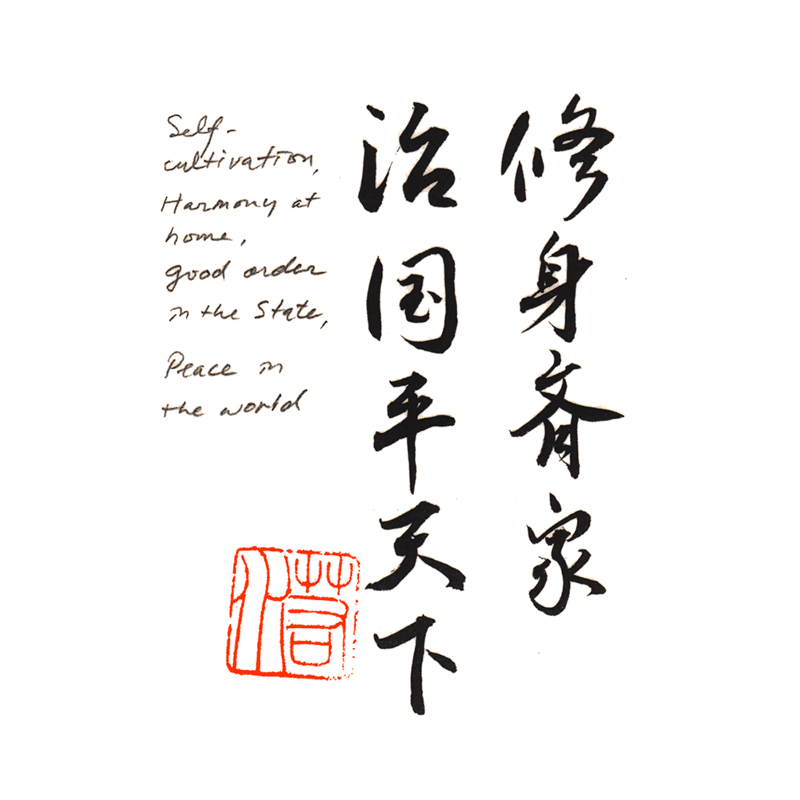 修身斉家
治国平天下
Self-
cultivation,
Harmony at
home,
good order
in the State,
Peace in
the world